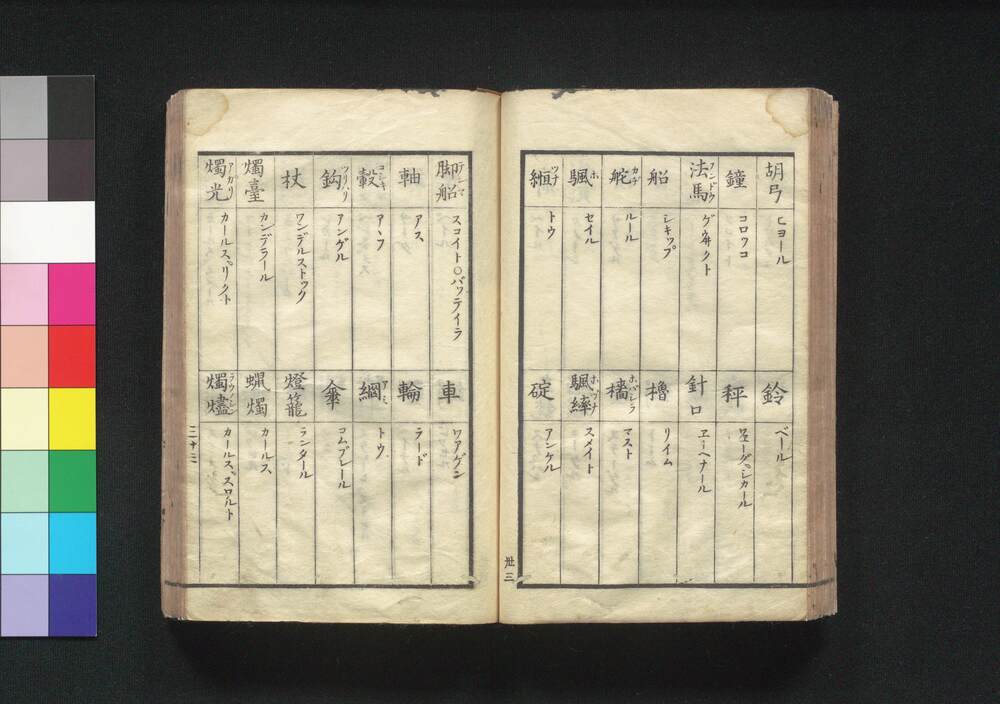 胡弓
ヒヨール
鐘
コロワコ
法馬 フンドウ
ゲウヰクト
船
シキップ
舵 カヂ
ルール
颿 ホ
セイル
絙 ツナ
トウ
鈴
ベール
秤
針口
ヱーヘナール
櫓
リイム
檣 ホバシラ
マスト
颿繂 ホヅナ
スメイト
碇
アンケル
卅三
脚船 テンマ
スコイト〇バッテイラ
軸
アス
轂 コシキ
アヽフ
鈎 ツリバリ
アンゲル
杖
ワンデルストック
燭臺
カンデラール
燭光 アカリ
カールス リクト
車
ワアゲン
輪
ラード
網 アミ
トウ
傘
コムブレール
燈籠
ランタール
蝋燭
カールス
燭燼
カールス スロルト
三十三